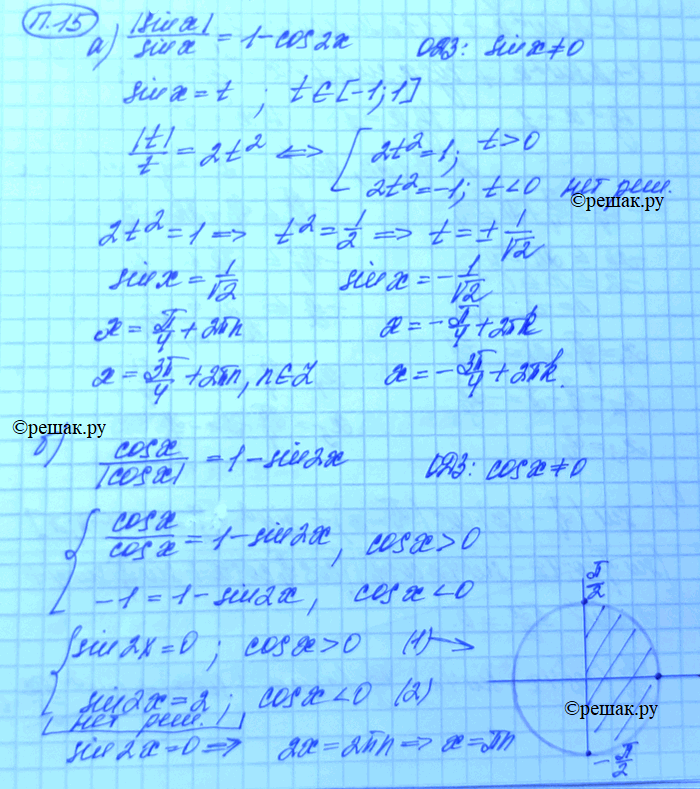 П.15
а) |sinx|/sinx = 1-cos2x ОДЗ: sinx≠0
sinx=t ; t∈[-1;1]
|t|/t = 2t² ⇔ [ 2t²=1; t>0
2t²=-1; t<0 нет реш.
©решак.ру
2t²=1 ⇒ t²=1/2 ⇒ t=±1/√2
sinx=1/√2 sinx=-1/√2
x=π/4+2πn x=-π/4+2πk
x=3π/4+2πn, n∈Z x=-3π/4+2πk.
©решак.ру
в) cosx/|cosx| = 1-sin2x ОДЗ: cosx≠0
{ cosx/cosx = 1-sin2x, cosx>0
-1=1-sin2x, cosx<0
π/2
{ sin2x=0 ; cosx>0 (1)→
sin2x=2 ; cosx<0 (2)
©решак.ру
нет реш.
sin2x=0 ⇒ 2x=2πn ⇒ x=πn
-π/2